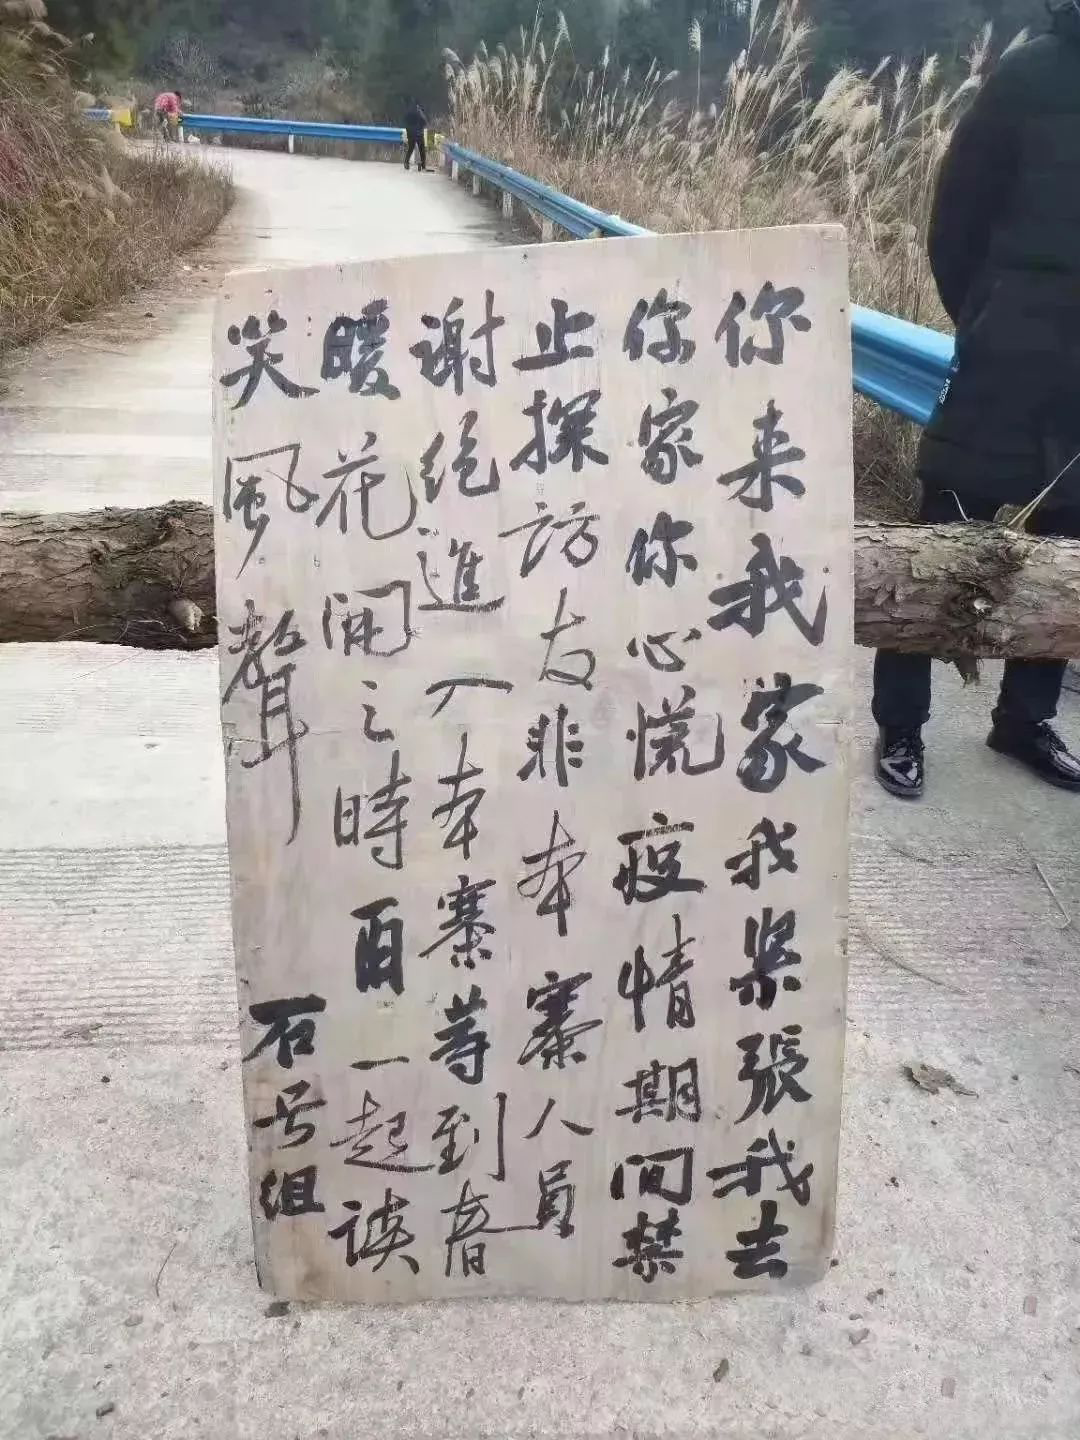 你来我家我紧張我去
你家你心慌疫情期间禁
止探访友非本寨人员
谢绝進入本寨等到春
暖花開之時再一起谈
笑風聲
石号组